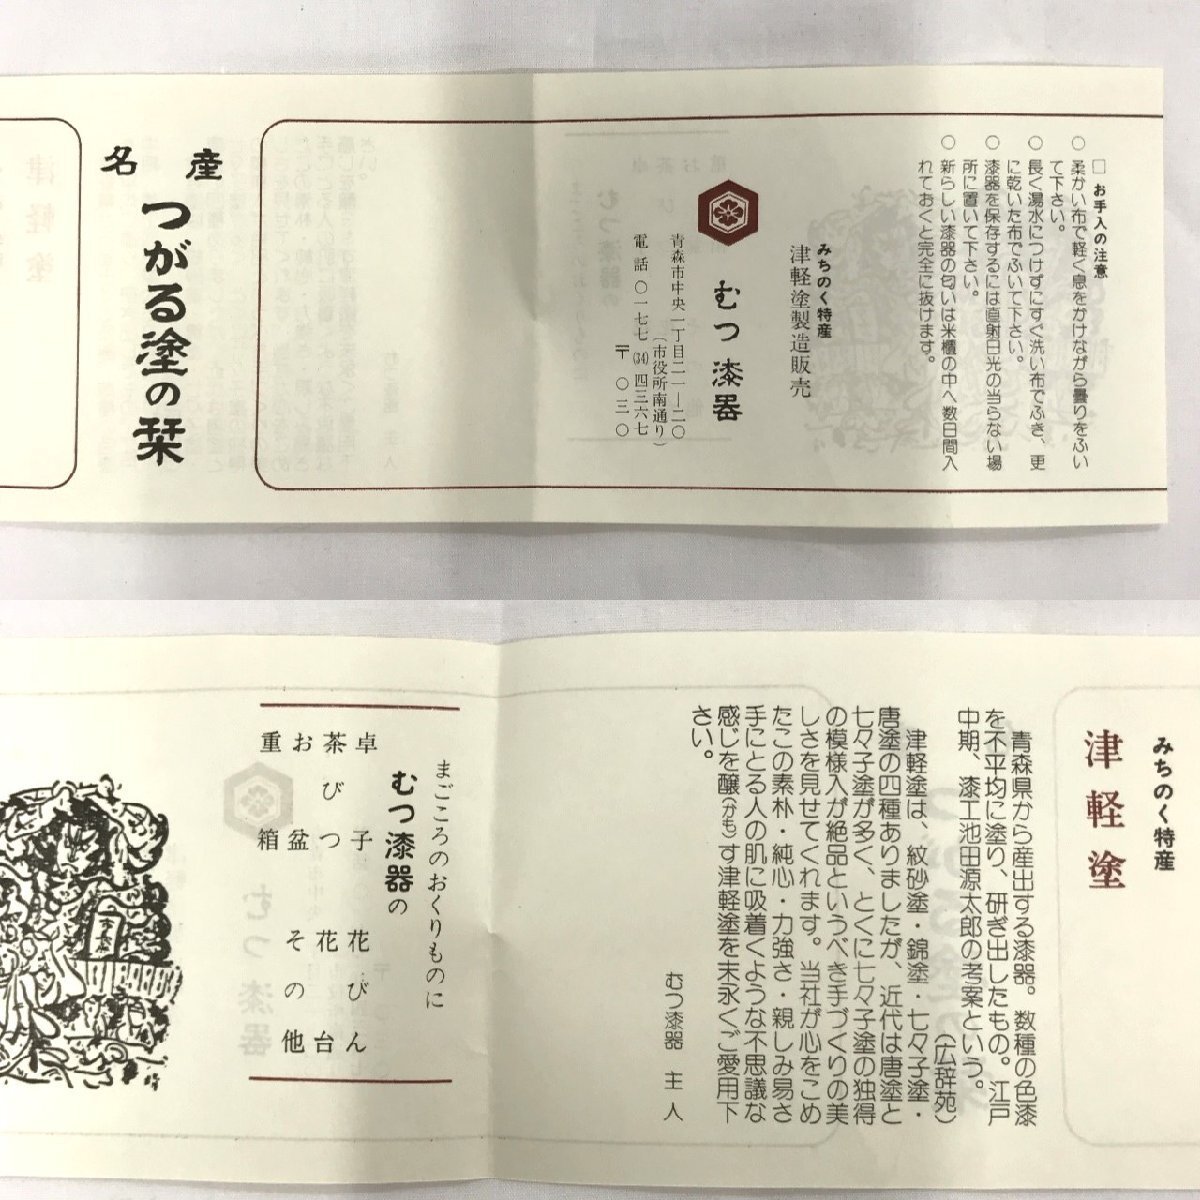 □ お手入の注意
○ 柔かい布で軽く息をかけながら曇りをふい
て下さい。
○ 長く湯水につけずにすぐ洗い布でふき、更
に乾いた布でふいて下さい。
○ 漆器を保存するには直射日光の当らない場
所に置いて下さい。
○ 新らしい漆器の匂いは米櫃の中へ数日間入
れておくと完全に抜けます。
みちのく特産
津軽塗製造販売
むつ漆器
青森市中央一丁目二一―二〇
(市役所南通り)
電話〇一七七(34)四三六七
〒〇三〇
名産
つがる塗の栞
みちのく特産
津軽塗
青森県から産出する漆器。数種の色漆
を不平均に塗り、研ぎ出したもの。江戸
中期、漆工池田源太郎の考案という。
(広辞苑)
津軽塗は、紋砂塗・錦塗・七々子塗・
唐塗の四種ありましたが、近代は唐塗と
七々子塗が多く、とくに七々子塗の独得
の模様入が絶品というべき手づくりの美
しさを見せてくれます。当社が心をこめ
たこの素朴・純心・力強さ・親しみ易さ
手にとる人の肌に吸着くような不思議な
感じを醸(かも)す津軽塗を末永くご愛用下
さい。
むつ漆器 主人
まごころのおくりものに
むつ漆器の
卓子 花びん
茶つ 花台
おびつ
お盆 その他
重箱